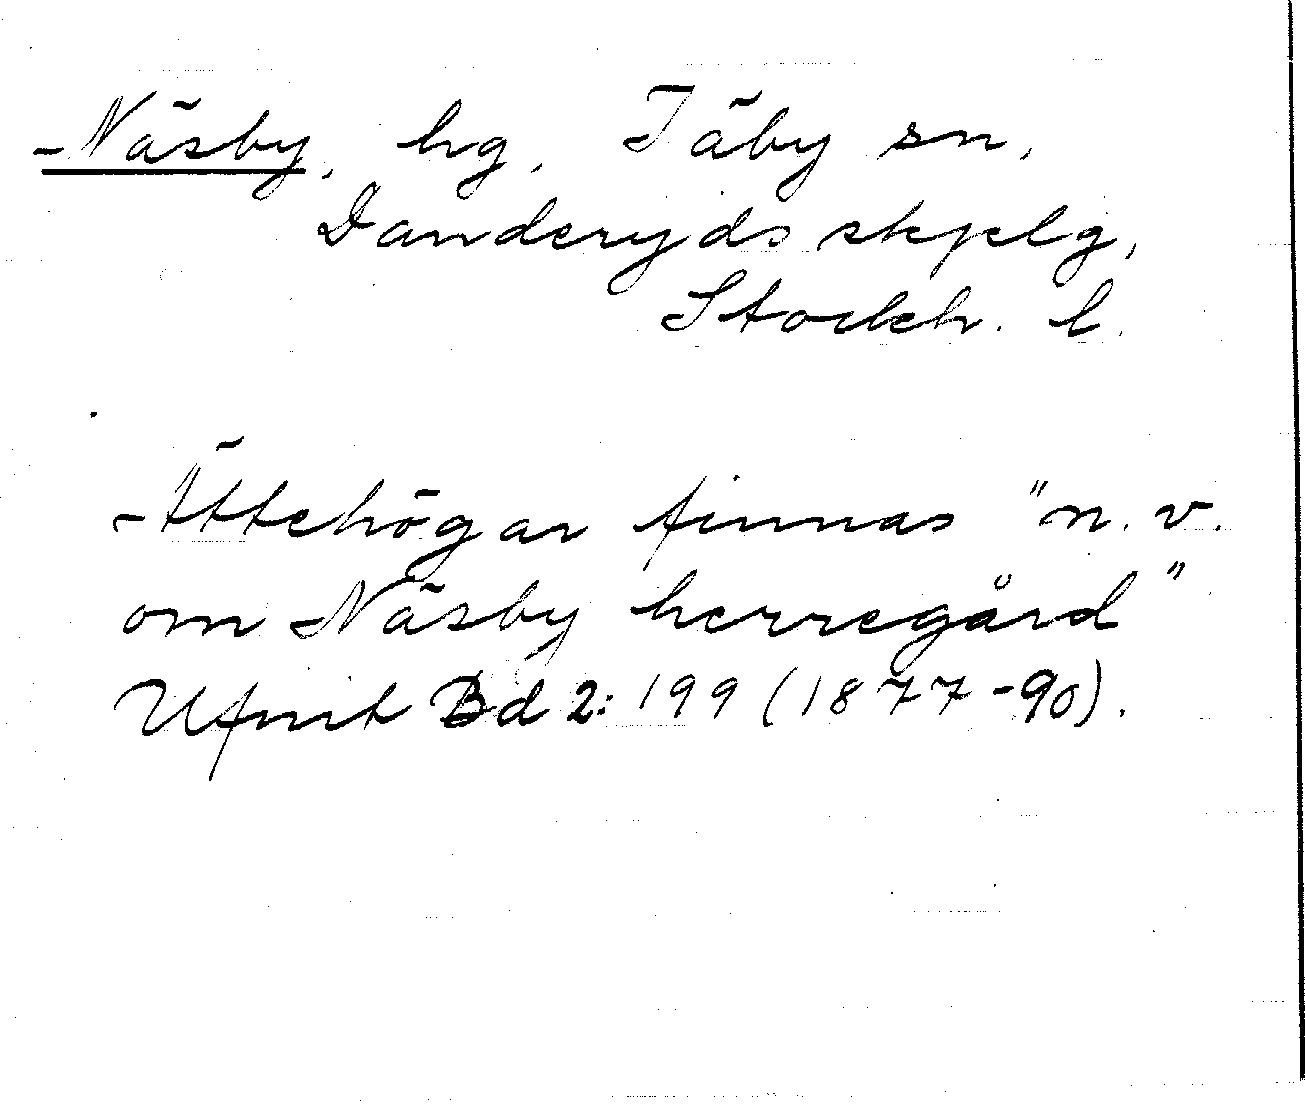 Näsby, hg, Täby sn,
Danderyds skplg,
Stockh. l.
Ättehögar finnas "n. v.
om Näsby herregård"
Ufmt Bd 2: 199 (1877-90).